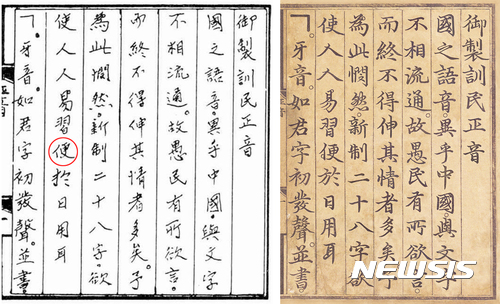 御製訓民正音
國之語音。異乎中國。與文字
不相流通。故愚民有所欲言。
而終不得伸其情者多矣。予
為此憫然。新制二十八字。欲
使人人易習便於日用耳
ㄱ。牙音。如君字初發聲。並書。
御製訓民正音
國之語音。異乎中國。與文字
不相流通。故愚民有所欲言。
而終不得伸其情者多矣。予
為此憫然。新制二十八字。欲
使人人易習便於日用耳
ㄱ。牙音。如君字初發聲。並書。
NEWSIS